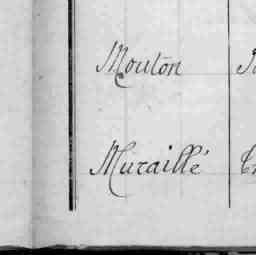 Mouton
Muraillé